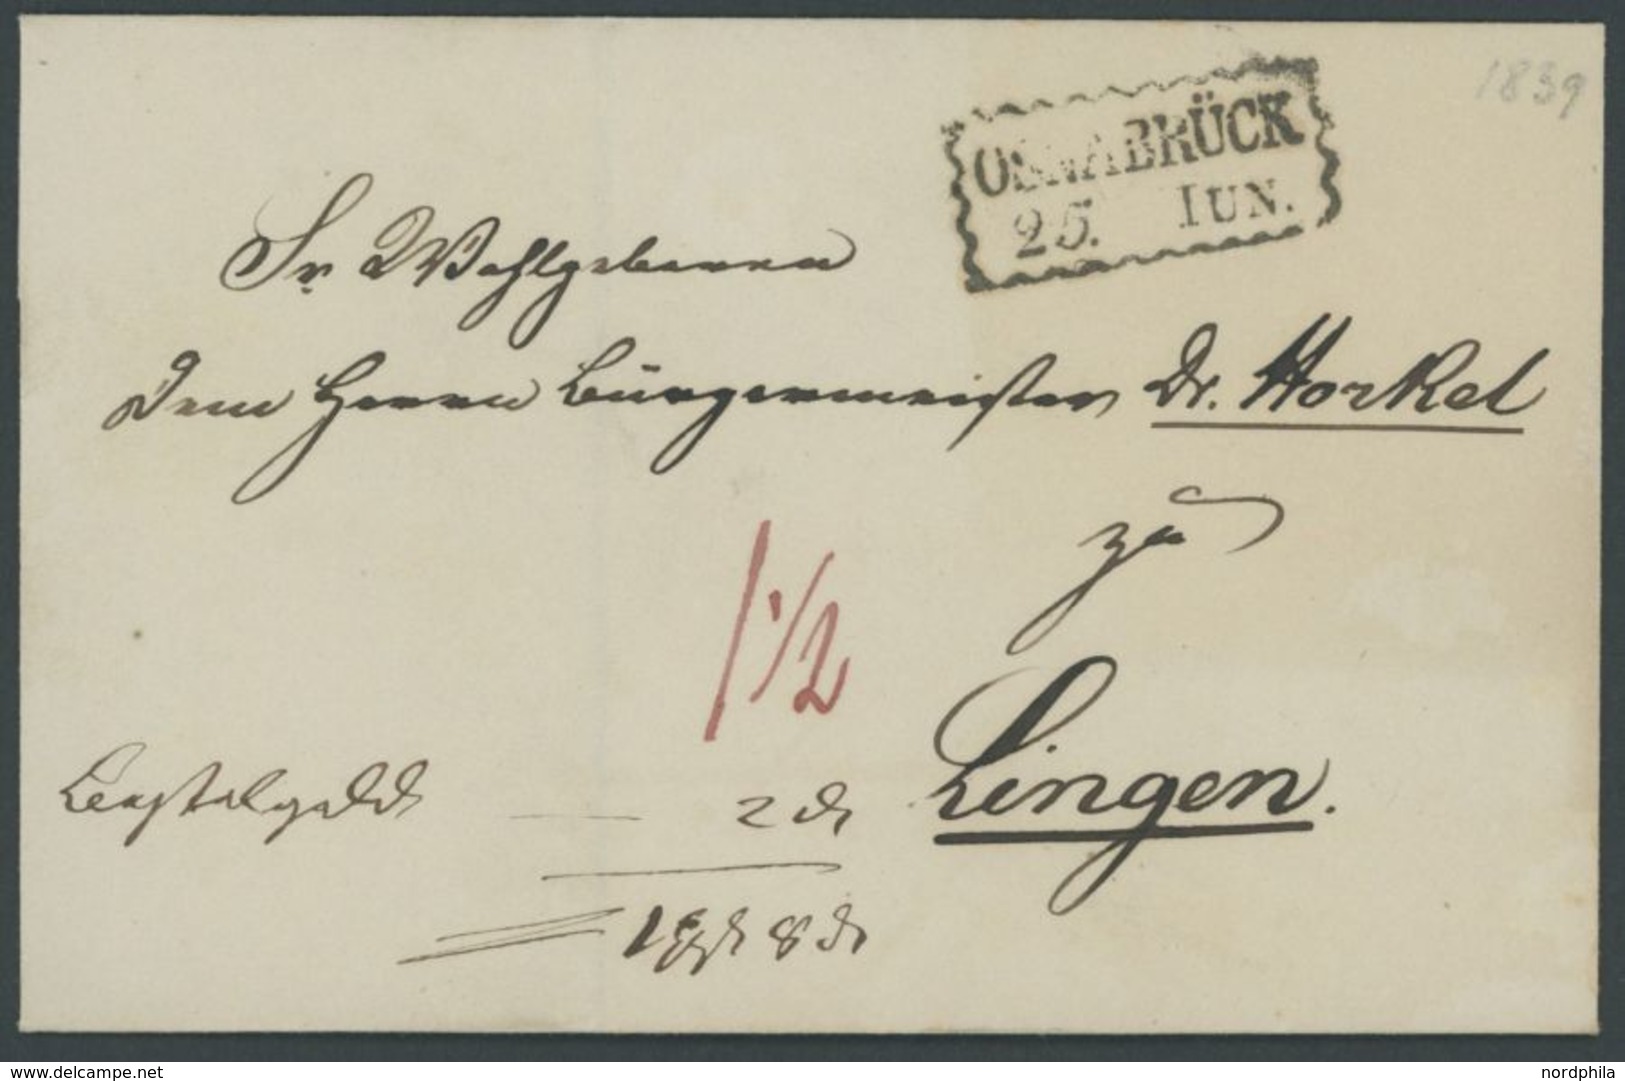 1839
OSNABRÜCK
25. IUN.
Sr Wohlgeboren
Dem Herrn Bürgermeister Dr. Horkel
zu
1 1/2
Lingen.
Bestelgeld — 2 d
1 ggr 8 d
www.delcampe.net
nordphila